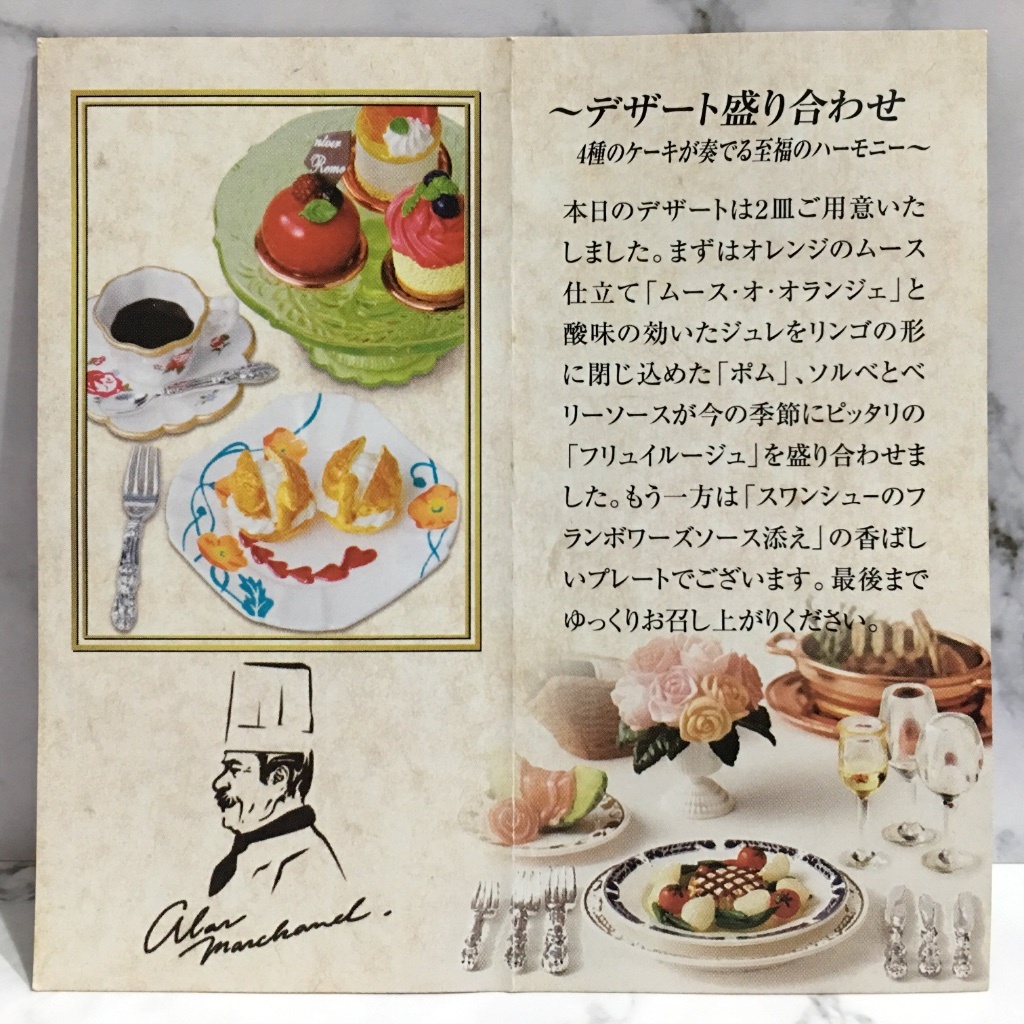 〜デザート盛り合わせ
4種のケーキが奏でる至福のハーモニー〜
本日のデザートは2皿ご用意いた
しました。まずはオレンジのムース
仕立て「ムース・オ・オランジェ」と
酸味の効いたジュレをリンゴの形
に閉じ込めた「ポム」、ソルベとベ
リーソースが今の季節にピッタリの
「フリュイルージュ」を盛り合わせま
した。もう一方は「スワンシューのフ
ランボワーズソース添え」の香ばし
いプレートでございます。最後まで
ゆっくりお召し上がりください。
Alan
Marchand.